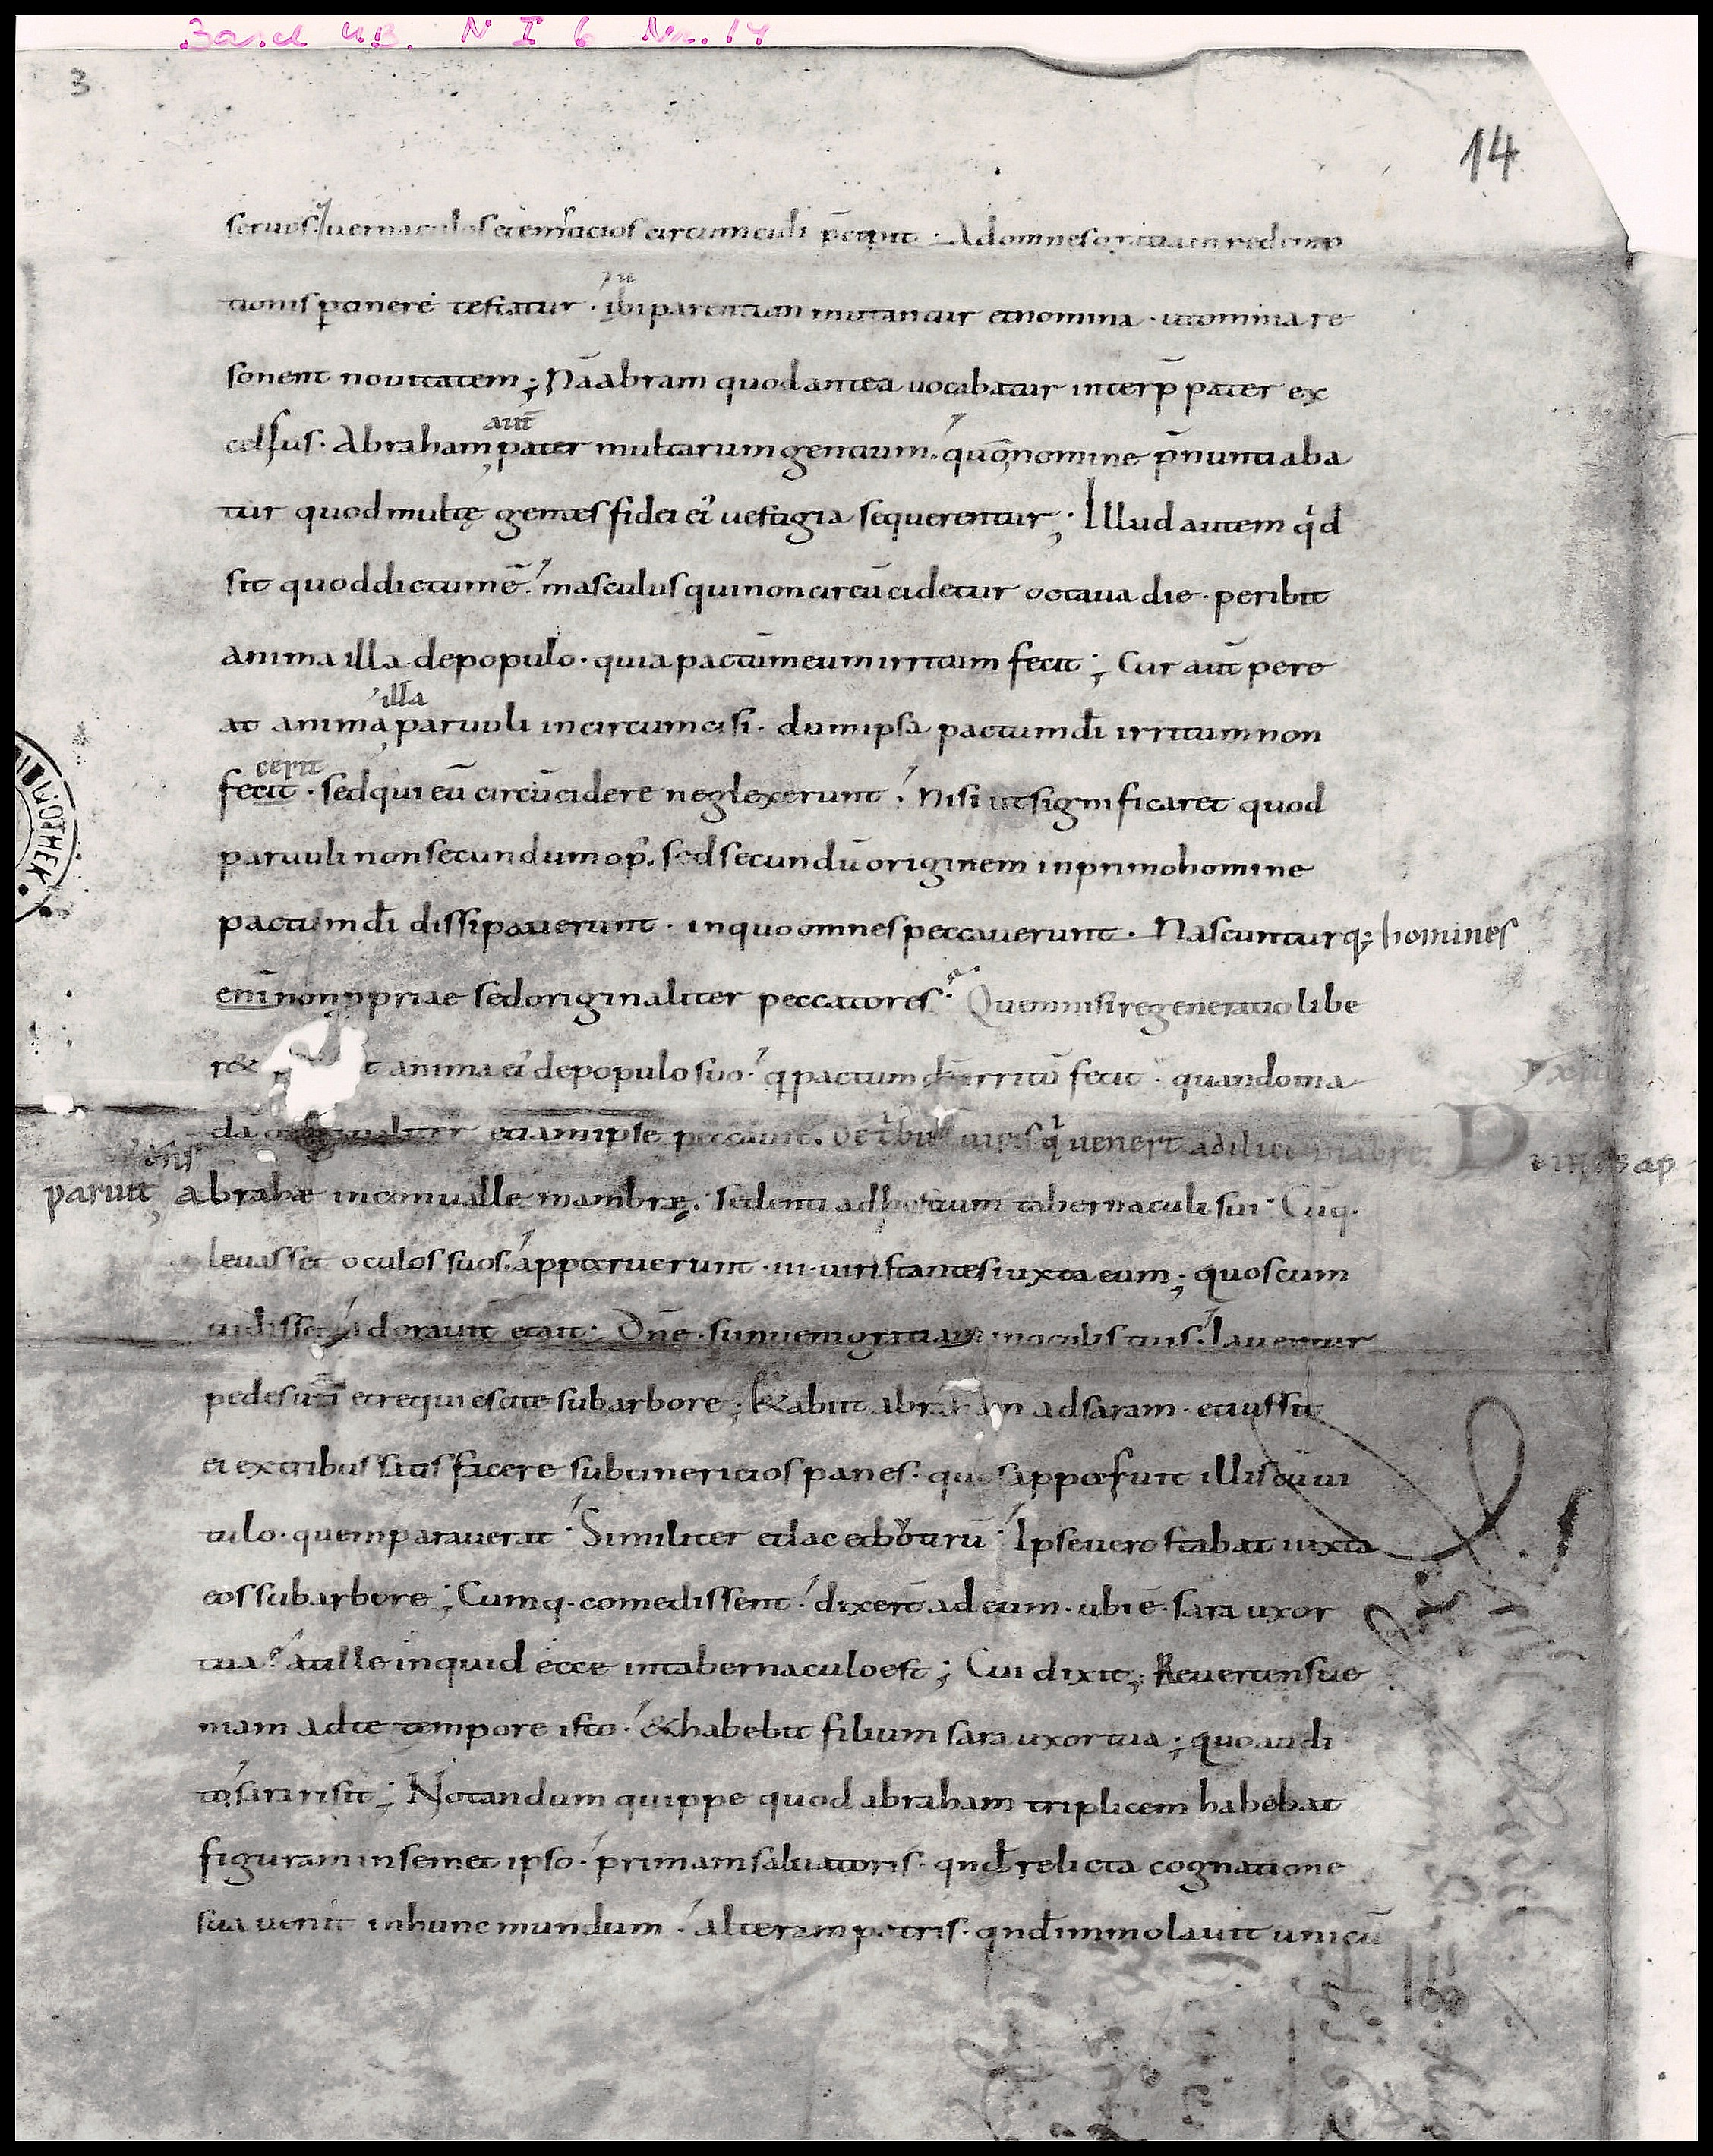 Basel UB. N I 6 Nr. 14
3
14
seruos ⁊ uernaculos et emticios circumcidi p̄cepit · Ad omnes gratiam redemp
tionis ptinere testatur · ibi parentum mutantur et nomina · ut omnia re
sonent nouitatem ; Nā abram quod antea uocabatur interp̄ pater ex
aut̄
celsus · Abraham pater multarum gentium · quo nomine p̄nuntiaba
tur quod multę gentes fidei ei' uestigia sequerentur ; Illud autem qd
sit quod dictum ē · masculus qui non circūcidetur octaua die · peribit
anima illa de populo · quia pactum meum irritum fecit ; Cur aut̄ pere
illa
at anima paruuli incircumcisi · dum ipsa pactum dī irritum non
cerit
fecit · sed qui eū circūcidere neglexerunt · Nisi ut significaret quod
paruuli non secundum op̄ · sed secundū originem in primo homine
pactum dī dissipauerunt · in quo omnes peccauerunt · Nascuntur q; homines
enī non ppriae sed originaliter peccatores · Quem nisi regeneratio libe
r& t anima ei' de populo suo · q pactum dī irritū fecit · quando in a
dā etiam ipse peccauit · De uiris q uener̄t ad
ons
paruit Abrahæ in conualle mambræ · sedenti ad hostium tabernaculi sui · Cūq ·
leuasset oculos suos · apparuerunt · III · uiri stantes iuxta eum ; quos cum
uidisset adorauit et ait · Dn̄e · si inueni gratiam in oculis tuis · lauentur
pedes ur̄i et requiescite sub arbore ; & abiit abraham ad saram · et iussit
ei ex tribus satis facere subcinericios panes · quos apposuit illis cū ui
tulo · quem parauerat · Similiter et lac et boturū · Ipse uero stabat iuxta
eos sub arbore ; Cumq · comedissent · dixer̄t ad eum · ubi ē · sara uxor
tua · at ille inquid ecce in tabernaculo est ; Cui dixit ; Reuertens ue
niam ad te tempore isto · & habebit filium sara uxor tua ; quo audi
to · sara risit ; Notandum quippe quod abraham triplicem habebat
figuram in semet ipso · primam saluatoris · qnd relicta cognatione
sua uenit in hunc mundum · alteram patris · qnd immolauit unicū
BIBLIOTHEK